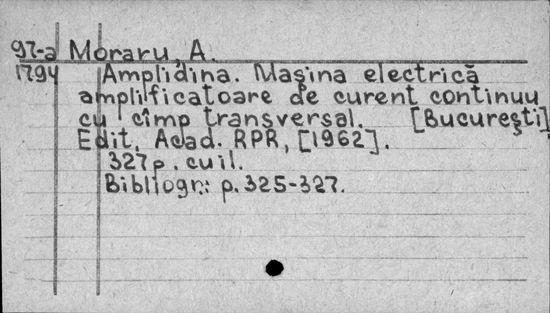 97-a Moraru, A.
1794 Amplidina. Maşina electrică
amplificatoare de curent continuu
cu cîmp transversal. [Bucureşti]
Edit. Acad. RPR, [1962].
327 p. cu il.
Bibliogr.: p. 325-327.